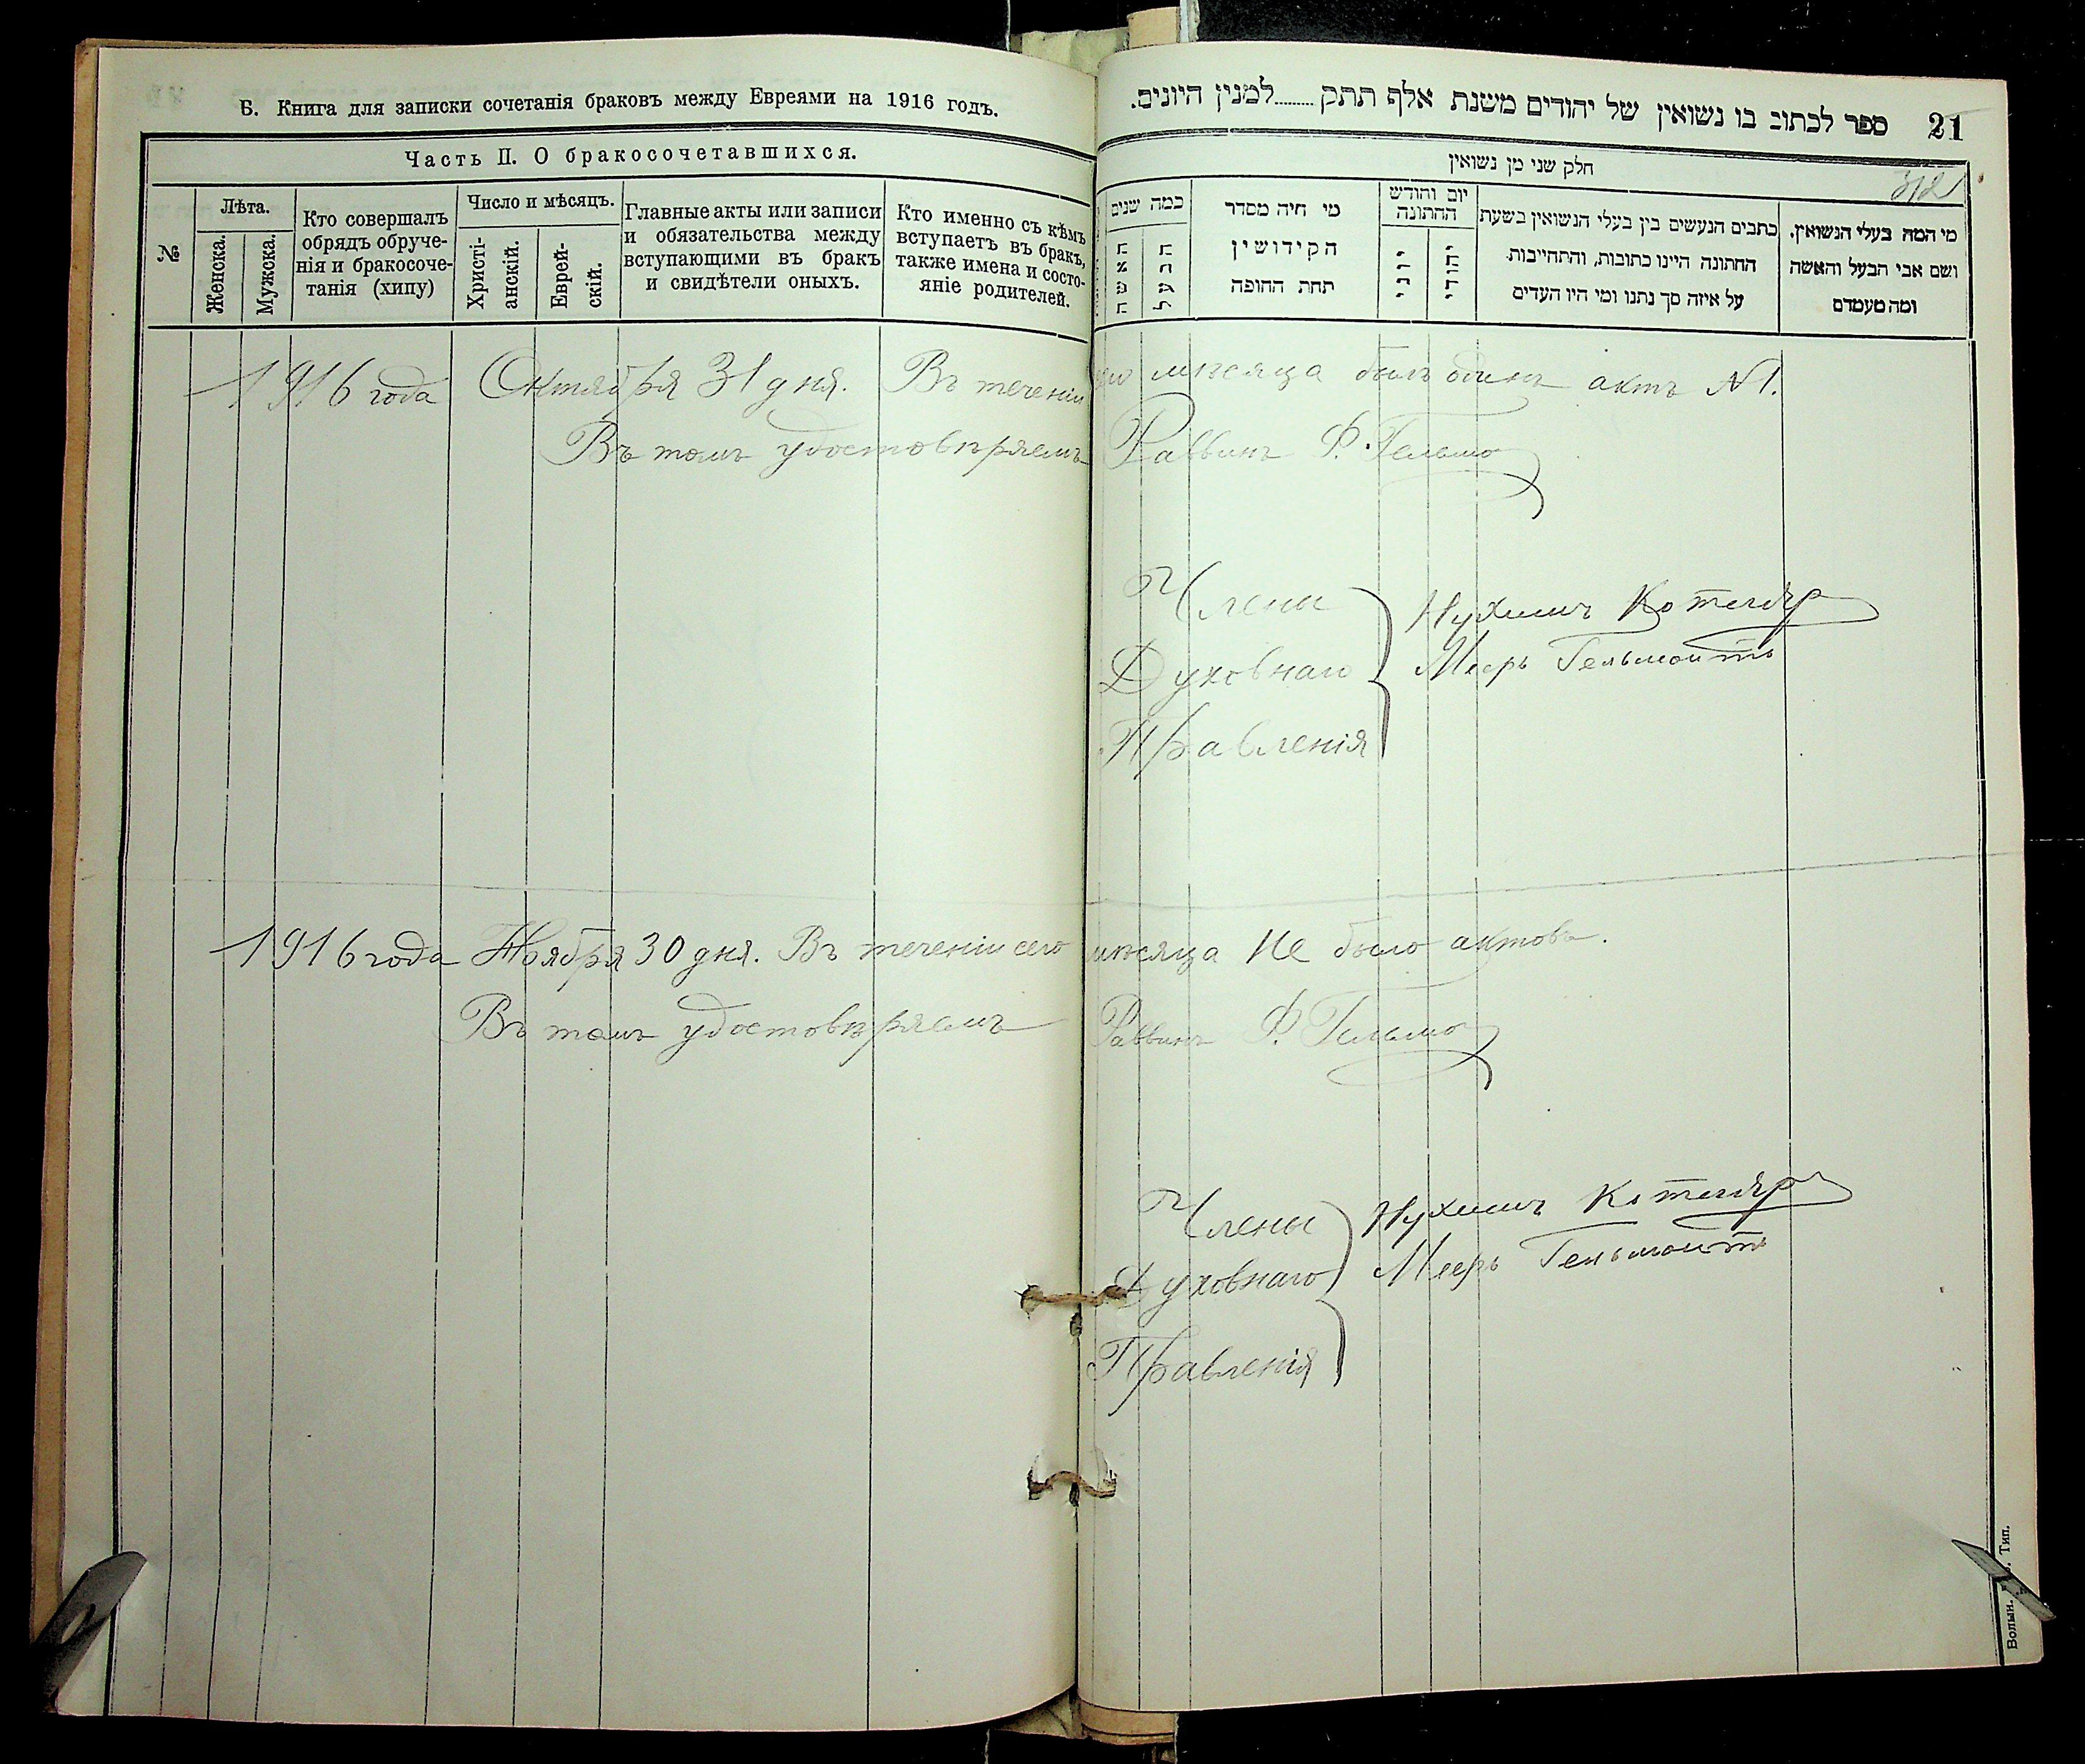 Б. Книга для записки сочетанія браковъ между Евреями на 1916 годъ.
Часть II. О бракосочетавшихся.
№
Лѣта.
Женска.
Мужска.
Кто совершалъ
обрядъ обруче-
нія и бракосоче-
танія (хипу)
Число и мѣсяцъ.
Христі-
анскій.
Еврей-
скій.
Главные акты или записи
и обязательства между
вступающими въ бракъ
и свидѣтели оныхъ.
Кто именно съ кѣмъ
вступаетъ въ бракъ,
также имена и состо-
яніе родителей.
21 ספר לכתוב בו נשואין של יהודים משנת אלף תתק ........ למנין היונים.
חלק שני מן נשואין
מי המה בעלי הנשואין,
ושם אבי הבעל והאשה
ומה מעמדם
כתבים הנעשים בין בעלי הנשואין בשעת
החתונה היינו כתובות, והתחייבות
על איזה סך נתנו ומי היו העדים
יום וחודש
החתונה
יהודי
יוני
מי היה מסדר
הקידושין
תחת החופה
כמה שנים
הבעל
האשה
1916 года Октября 31 дня. Въ теченіи сего мѣсяца былъ одинъ актъ №1.
Въ томъ удостовѣряемъ Раввинъ Ф. Гельмо
Члены
Духовнаго
Правленія
Нухимъ Котляръ
Мееръ Гельмонтъ
1916 года Ноября 30 дня. Въ теченіи сего мѣсяца не было актовъ.
Въ томъ удостовѣряемъ Раввинъ Ф. Гельмо
Члены
Духовнаго
Правленія
Нухимъ Котляръ
Мееръ Гельмонтъ
Волын. Тип.